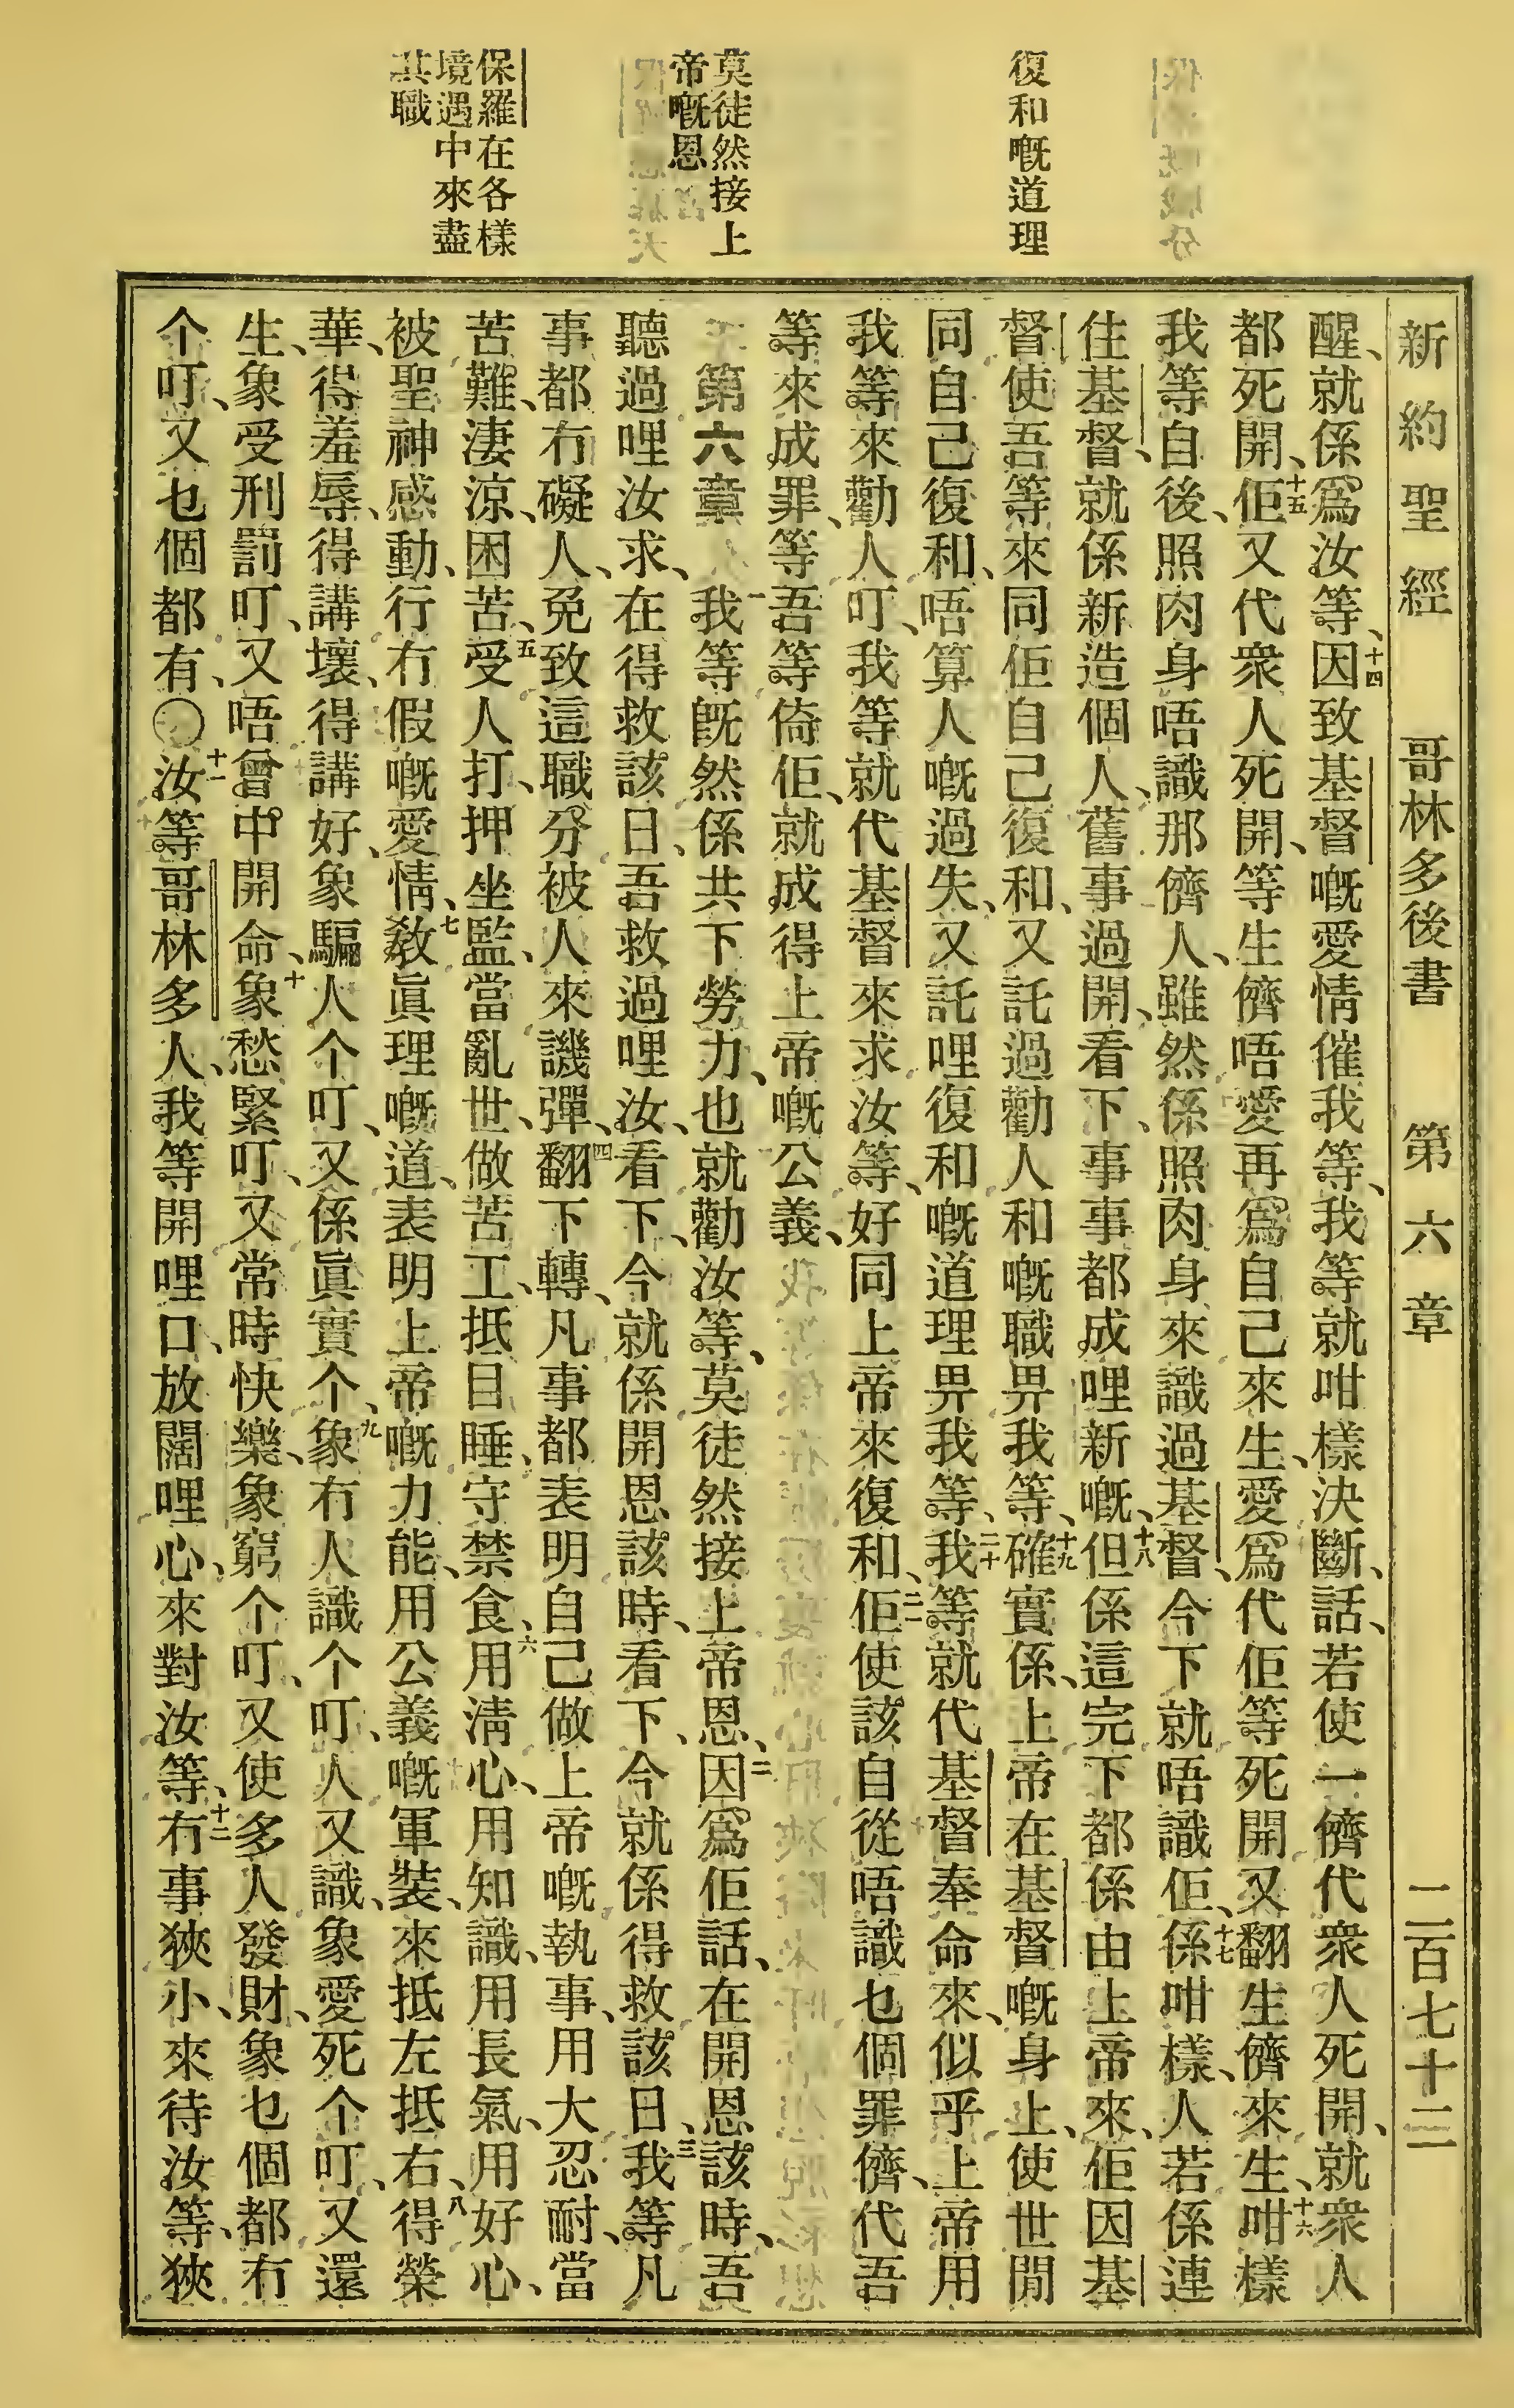 新約聖經 哥林多後書 第六章 二百七十二
復和嘅道理
莫徒然接上
帝嘅恩
保羅在各樣
境遇中來盡
其職
醒、就係爲汝等、十四因致基督嘅愛情催我等、我等就咁樣決斷、話、若使一儕代衆人死開、就衆人
都死開、十五佢又代衆人死開、等生儕唔愛再爲自己來生、愛爲代佢等死開又翻生儕來生、十六咁樣
我等自後、照肉身唔識那儕人、雖然係照肉身來識過基督、今下就唔識佢、十七係咁樣、人若係連
住基督、就係新造個人、舊事過開、看下、事事都成哩新嘅、十八但係這完下都係由上帝來、佢因基
督使吾等來同佢自己復和、又託過勸人和嘅職畀我等、十九確實係、上帝在基督嘅身上、使世間
同自己復和、唔算人嘅過失、又託哩復和嘅道理畀我等、二十我等就代基督奉命來、似乎上帝用
我等來勸人叮、我等就代基督來求汝等、好同上帝來復和、二一佢使該自從唔識乜個罪儕、代吾
等來成罪、等吾等倚佢、就成得上帝嘅公義、
第六章 一我等旣然係共下勞力、也就勸汝等、莫徒然接上帝恩、二因爲佢話、在開恩該時、吾
聽過哩汝求、在得救該日、吾救過哩汝、看下、今就係開恩該時、看下、今就係得救該日、三我等凡
事都冇礙人、免致這職分被人來譏彈、四翻下轉、凡事都表明自己做上帝嘅執事、用大忍耐、當
苦難、淒涼、困苦、五受人打、押坐監、當亂世、做苦工、抵目睡、守禁食、六用淸心、用知識、用長氣、用好心、
被聖神感動、行冇假嘅愛情、七敎眞理嘅道、表明上帝嘅力能、用公義嘅軍裝、來抵左抵右、八得榮
華、得羞辱、得講壞、得講好、象騙人个叮、又係眞實个、九象冇人識个叮、人又識、象愛死个叮、又還
生、象受刑罰叮、又唔曾中開命、十象愁緊叮、又常時快樂、象窮个叮、又使多人發財、象乜個都冇
个叮、又乜個都有、〇十一汝等哥林多人、我等開哩口、放闊哩心、來對汝等、十二冇事狹小、來待汝等、狹